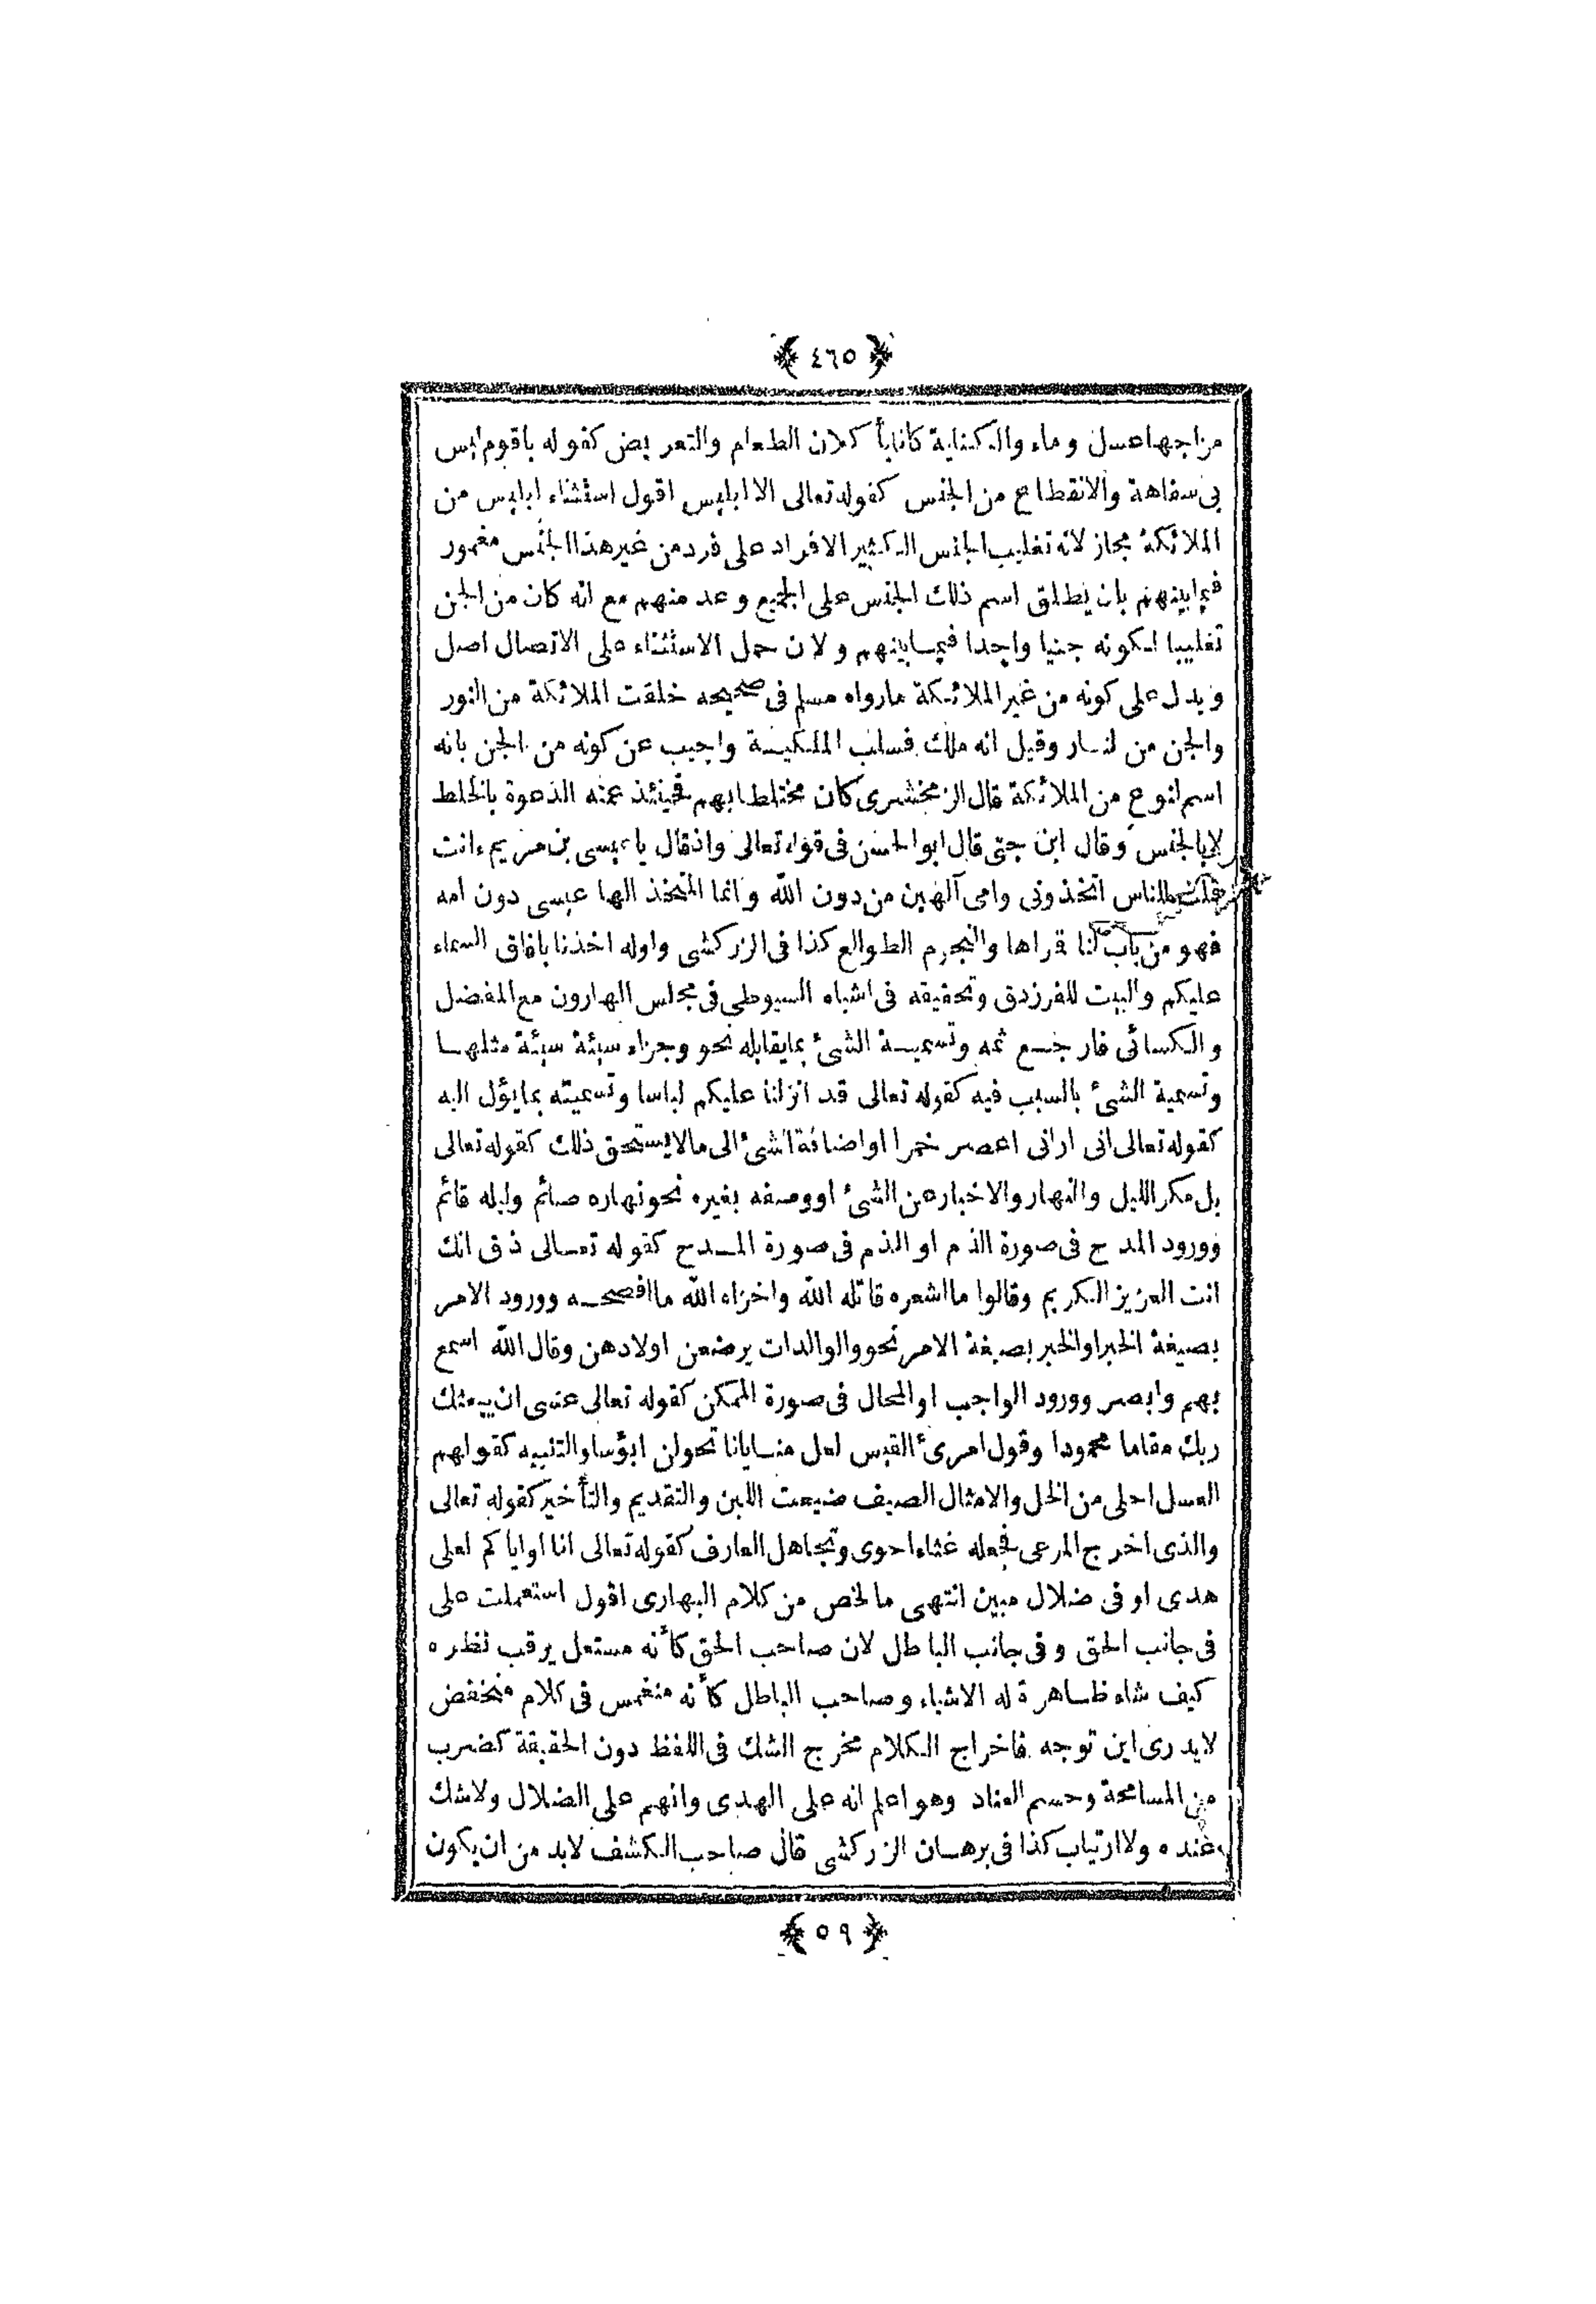 ﴿ ٤٦٥ ﴾
مزاجها عسل وماء والكناية كانا يأكلان الطعام والتعريض كقوله ياقوم ليس
بى سفاهة والانقطاع من الجنس كقوله تعالى الا ابليس اقول استثناء ابليس من
الملائكة مجاز لانه تغليب الجنس الكثير الافراد على فرد من غير هذا الجنس مغمور
فيما بينهم بان يطلق اسم ذلك الجنس على الجميع وعد منهم مع انه كان من الجن
تغليبا لكونه جنيا واحدا فيما بينهم ولان حمل الاستثناء على الاتصال اصل
ويدل على كونه من غير الملائكة مارواه مسلم فى صحيحه خلقت الملائكة من النور
والجن من لنار وقيل انه ملك فسلب الملكية واجيب عن كونه من الجن بانه
اسم لنوع من الملائكة قال الزمخشرى كان مختلطا بهم فحينئذ عمته الدعوة بالخلط
لا بالجنس وقال ابن جنى قال ابو الحسن فى قوله تعالى واذ قال ياعيسى بن مريم ءانت
قلت للناس اتخذونى وامى آلهين من دون الله وانما المتخذ الها عيسى دون امه
فهو من باب لنا قراها والنجوم الطوالع كذا فى الزركشى واوله اخذنا بافاق السماء
عليكم والبيت للفرزدق وتحقيقه فى اشباه السيوطى فى مجلس الهارون مع المفضل
والكسائى فارجع ثمه وتسمية الشئ بما يقابله نحو وجزاء سيئة سيئة مثلها
وتسمية الشئ بالسبب فيه كقوله تعالى قد انزلنا عليكم لباسا وتسميته بما يؤل اليه
كقوله تعالى انى ارانى اعصر خمرا او اضافة الشئ الى مالا يستحق ذلك كقوله تعالى
بل مكر الليل والنهار والاخبار عن الشئ او وصفه بغيره نحو نهاره صائم وليله قائم
وورود المدح فى صورة الذم او الذم فى صورة المدح كقوله تعالى ذق انك
انت العزيز الكريم وقالوا ما اشعره قاتله الله واخزاه الله ما افصحه وورود الامر
بصيغة الخبر او الخبر بصيغة الامر نحو والوالدات يرضعن اولادهن وقال الله اسمع
بهم وابصر وورود الواجب او المحال فى صورة الممكن كقوله تعالى عسى ان يبعثك
ربك مقاما محمودا وقول امرئ القيس لعل منايانا تحولن ابؤسا والتنبيه كقولهم
العسل احلى من الخل والامثال الصيف ضيعت اللبن والتقديم والتأخير كقوله تعالى
والذى اخرج المرعى فجعله غثاء احوى وتجاهل العارف كقوله تعالى انا او اياكم لعلى
هدى او فى ضلال مبين انتهى ما لخص من كلام البهارى اقول استعملت على
فى جانب الحق وفى جانب الباطل لان صاحب الحق كأنه مستعل يرقب نظره
كيف شاء ظاهرة له الاشياء وصاحب الباطل كأنه منغمس فى كلام منخفض
لايدرى اين توجه فاخراج الكلام مخرج الشك فى اللفظ دون الحقيقة كضرب
من المسامحة وحسم العناد وهو اعلم انه على الهدى وانهم على الضلال ولاشك
عنده ولا ارتياب كذا فى برهان الزركشى قال صاحب الكشف لابد من ان يكون
﴿ ٥٩ ﴾